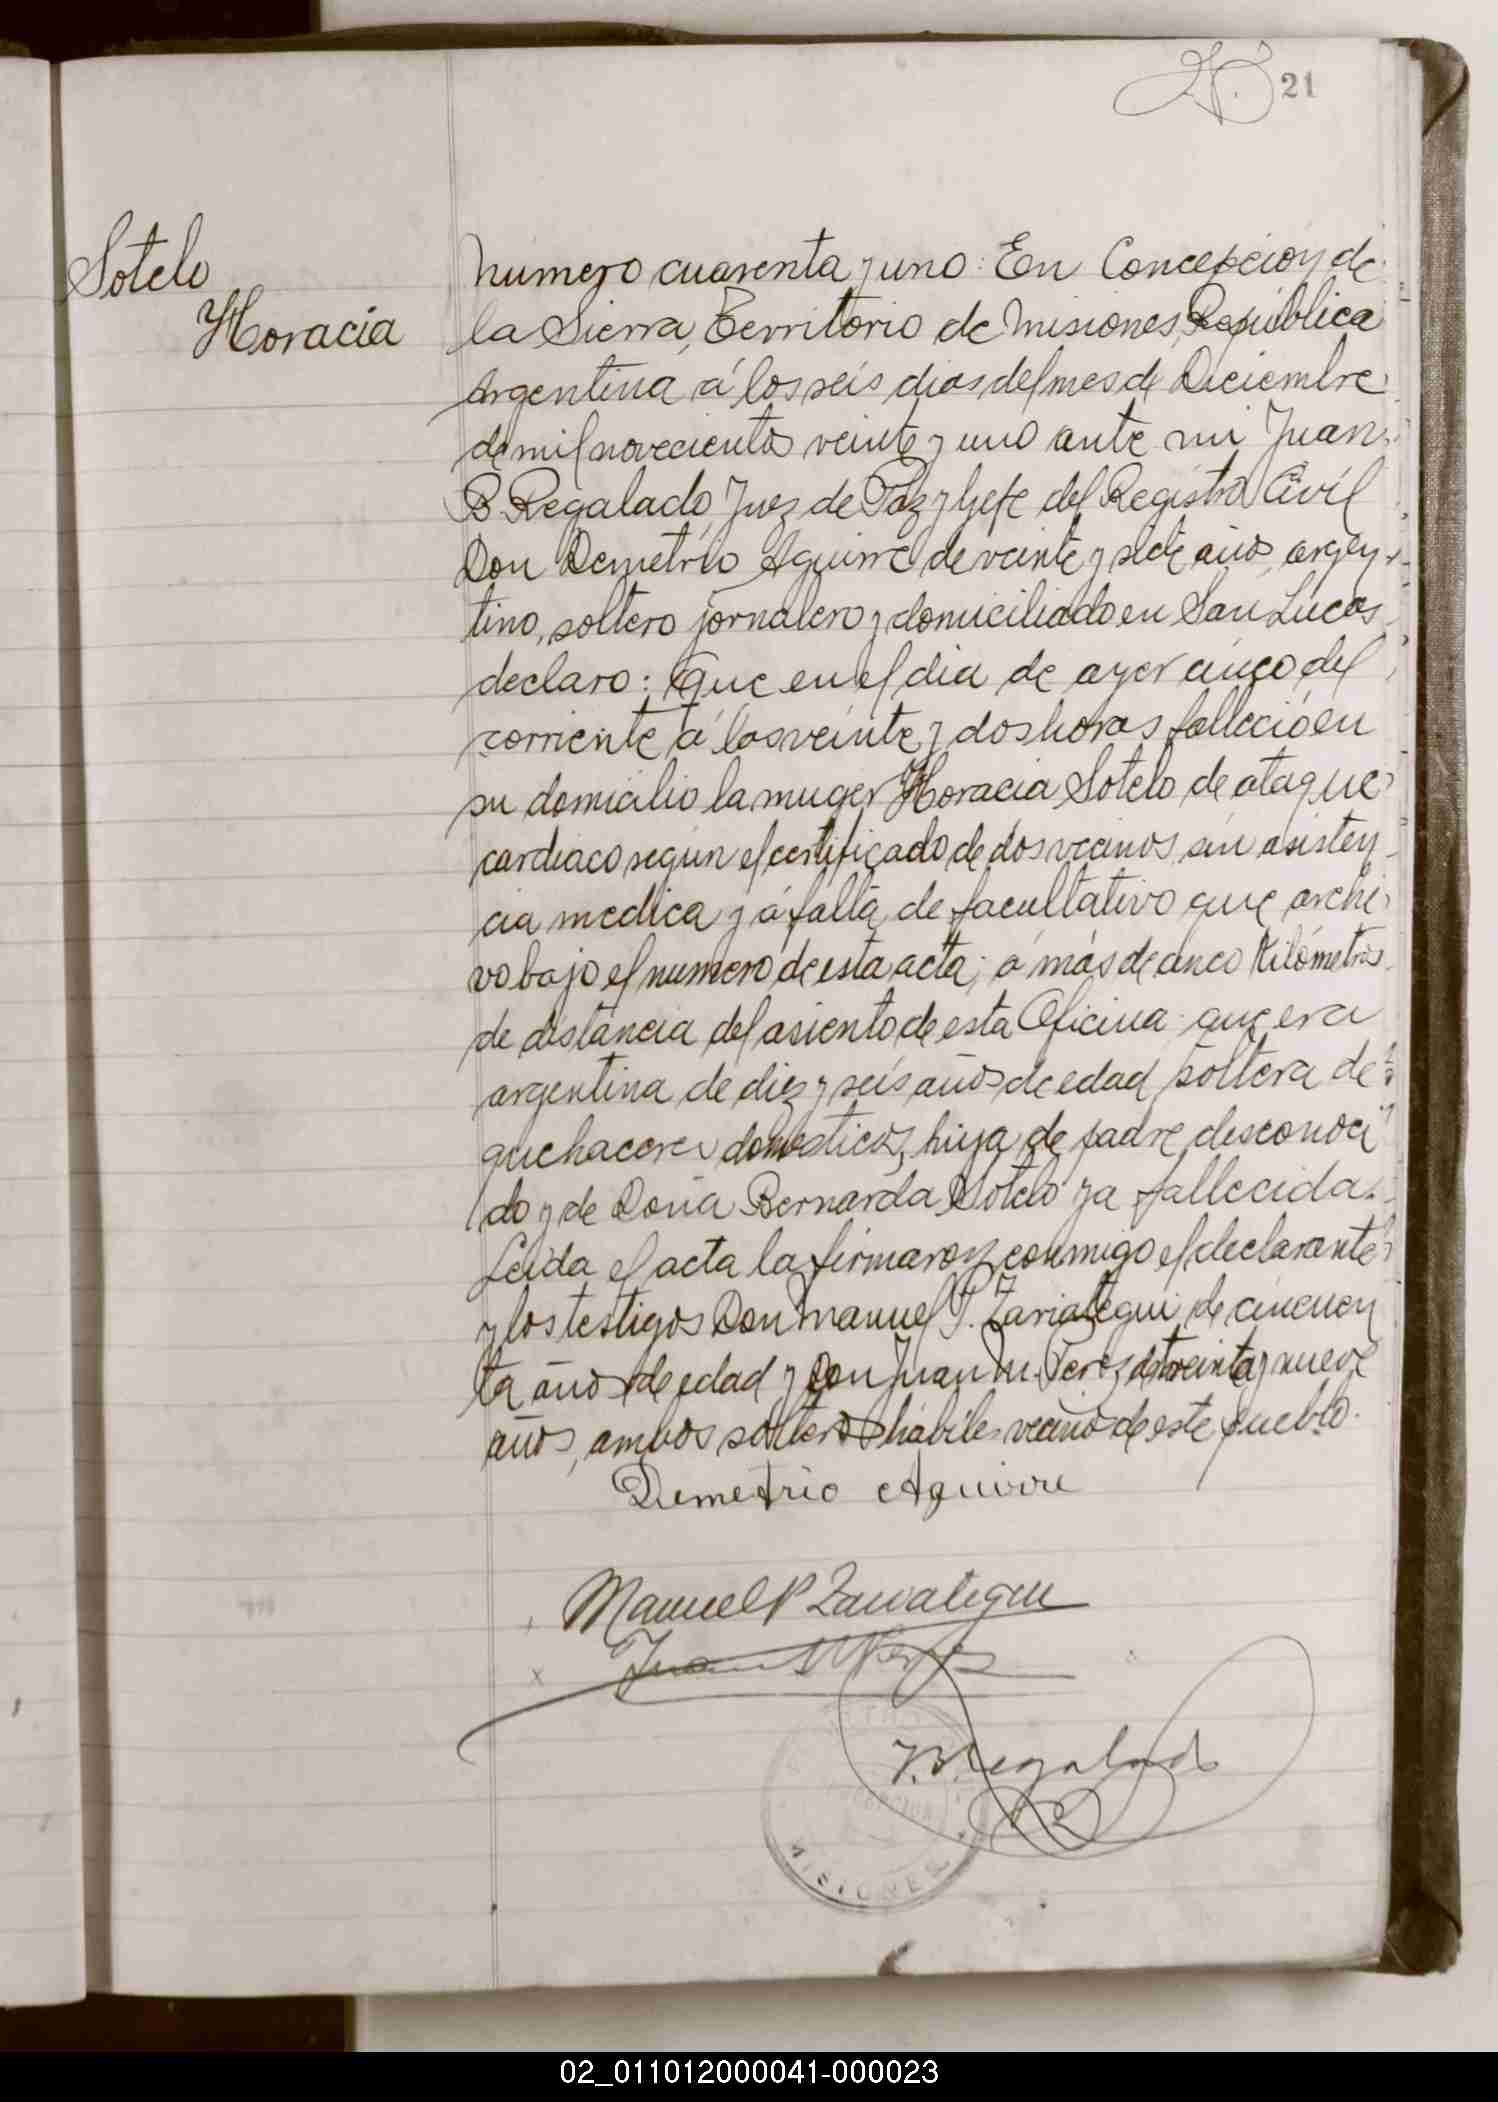 21
Sotelo
Horacia
Numero cuarenta y uno: En Concepción de
la Sierra, Territorio de Misiones, República
Argentina á los seis dias del mes de Diciembre
de mil novecientos veinte y uno ante mi Juan
B Regalado, Juez de Paz y Jefe del Registro Civil
Don Demetrio Aguirre de veinte y siete años, argen-
tino, soltero jornalero y domiciliado en San Lucas
declaro: Que en el dia de ayer cinco del
corriente á las veinte y dos horas falleció en
su domicilio la muger Horacia Sotelo de ataque
cardiaco según el certificado de dos vecinos, sin asisten
cia medica y á falta de facultativo que archi
vo bajo el numero de esta acta; á más de cinco Kilómetros
de distancia del asiento de esta Oficina. que era
argentina de diez y seis años de edad, soltera de
quehaceres domesticos, hija de padre desconoci
do y de Doña Bernarda Sotelo ya fallecida.
Leida el acta la firmaron conmigo el declarante
y los testigos Don Manuel P. Zariategui de cincuen
ta años de edad y Don Juan M. Perez de treinta y nueve
años, ambos solteros hábiles vecinos de este pueblo.
Demetrio Aguirre
Manuel P Zariategui
Juan M Perez
J. B. Regalado
MISIONES
02_011012000041-000023